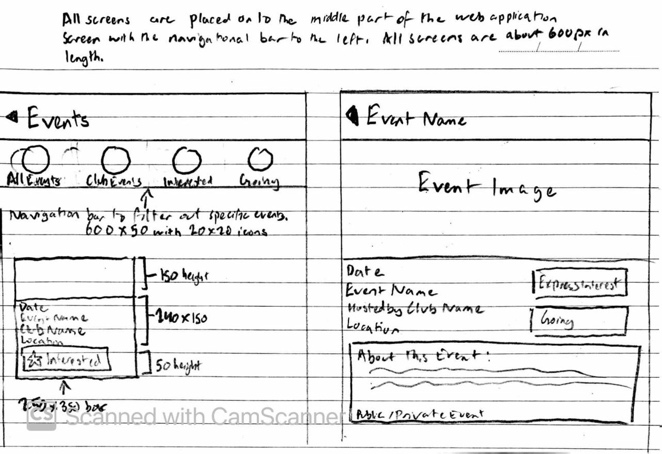 All screens are placed on to the middle part of the web application
screen with the navigational bar to the left. All screens are about 600px in
length.
Events
All Events Club Events Interested Going
Navigation bar to filter out specific events.
600 x 50 with 20x20 icons
150 height
Date
Event Name
Club Name
Location
Interested
240x150
50 height
250 x 350 box
Scanned with CamScanner
Event Name
Event Image
Date
Event Name
Hosted by Club Name
Location
Express Interest
Going
About This Event:
Public/Private Event